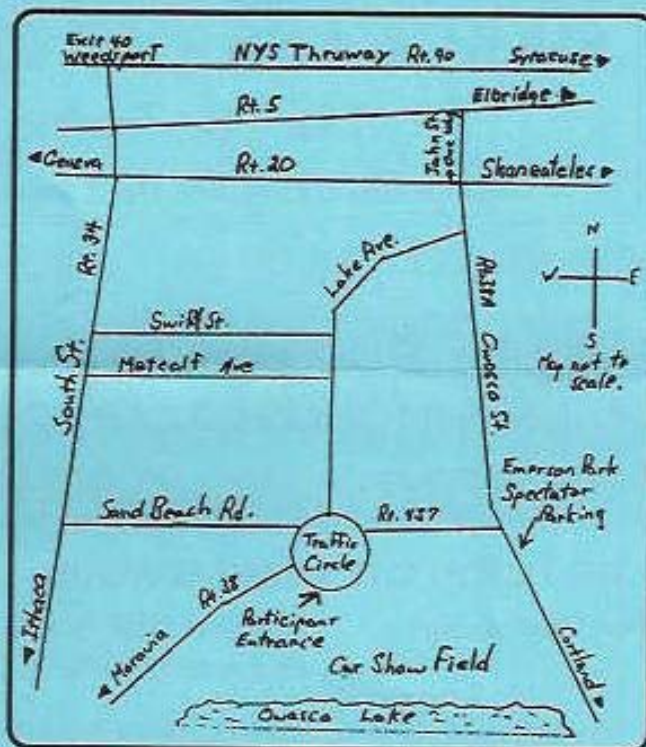 Exit 40
Weedsport
NYS Thruway Rt. 90
Syracuse
Rt. 5
Elbridge
John St.
One Way
Geneva
Rt. 20
Skaneateles
Rt. 34
Lake Ave.
Rt. 38A Owasco St.
N
W
E
S
Map not to
scale.
Swift St.
Metcalf Ave
South St.
Emerson Park
Spectator
Parking
Sand Beach Rd.
Rt. 437
Traffic
Circle
Rt. 38
Participant
Entrance
Ithaca
Moravia
Car Show Field
Cortland
Owasco Lake